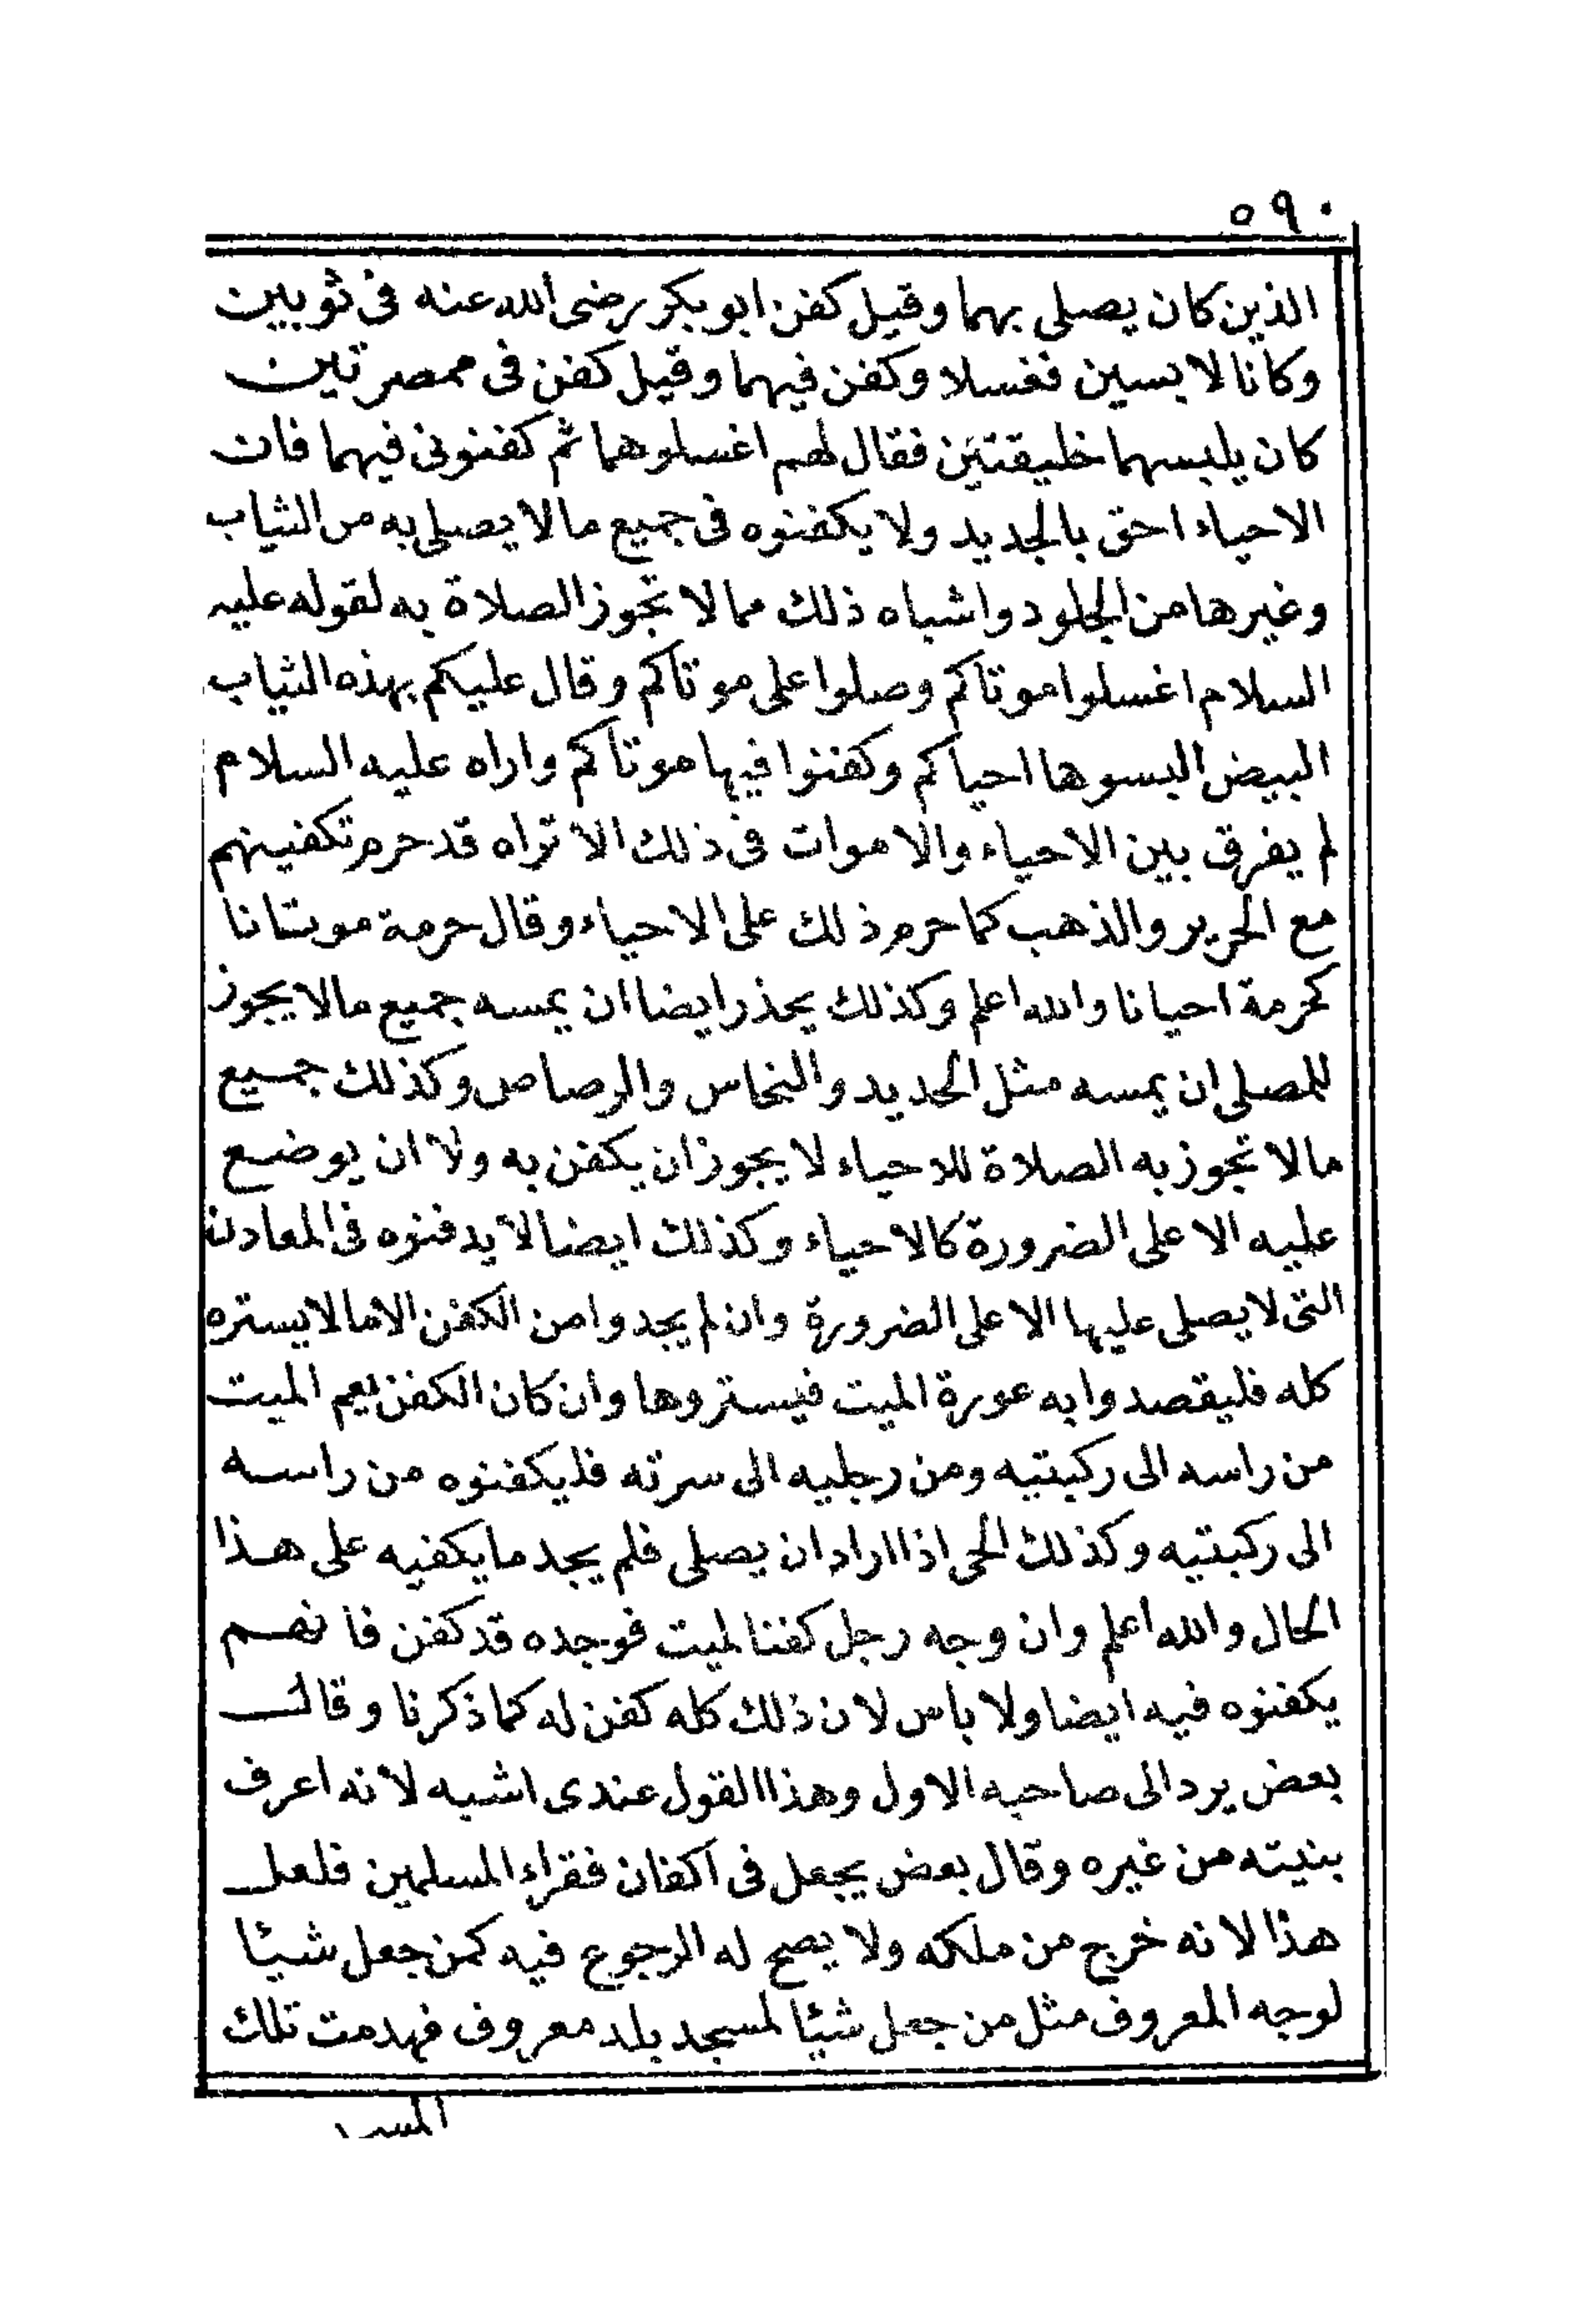 ٥٩٠
الذين كان يصلى بهما وقيل كفن ابو بكر رضى الله عنه فى ثوبين
وكانا لابسين فغسلا وكفن فيهما وقيل كفن فى ممصرتين
كان يلبسهما خليقتين فقال لهم اغسلوهما ثم كفنونى فيهما فان
الاحياء احق بالجديد ولا يكفنوه فى جميع ما لا يصلى به من الثياب
وغيرها من الجلود واشباه ذلك مما لا تجوز الصلاة به لقوله عليه
السلام اغسلوا موتاكم وصلوا على موتاكم وقال عليكم بهذه الثياب
البيض البسوها احياكم وكفنوا فيها موتاكم واراه عليه السلام
لم يفرق بين الاحياء والاموات فى ذلك الا تراه قد حرم تكفينهم
مع الحرير والذهب كما حرم ذلك على الاحياء وقال حرمة موتانا
كحرمة احيانا والله اعلم وكذلك يحذر ايضا ان يمسه جميع ما لا يجوز
للمصلى ان يمسه مثل الحديد والنحاس والرصاص وكذلك جميع
ما لا تجوز به الصلاة للاحياء لا يجوز ان يكفن به ولا ان يوضع
عليه الا على الضرورة كالاحياء وكذلك ايضا لا يدفنوه فى المعادن
التى لا يصلى عليها الا على الضرورة وان لم يجدوا من الكفن الا ما لا يستره
كله فليقصدوا به عورة الميت فيستروها وان كان الكفن يعم الميت
من راسه الى ركبتيه ومن رجليه الى سرته فليكفنوه من راسه
الى ركبتيه وكذلك الحى اذا اراد ان يصلى فلم يجد ما يكفيه على هذا
الحال والله اعلم وان وجه رجل كفنا لميت فوجده قد كفن فانهم
يكفنوه فيه ايضا ولا باس لان ذلك كله كفن له كما ذكرنا وقال
بعض يرد الى صاحبه الاول وهذا القول عندى اشبه لانه اعرف
بنيته من غيره وقال بعض يجعل فى اكفان فقراء المسلمين فلعل
هذا لانه خرج من ملكه ولا يصح له الرجوع فيه كمن جعل شيئا
لوجه المعروف مثل من جعل شيئا لمسجد بلد معروف فهدمت تلك